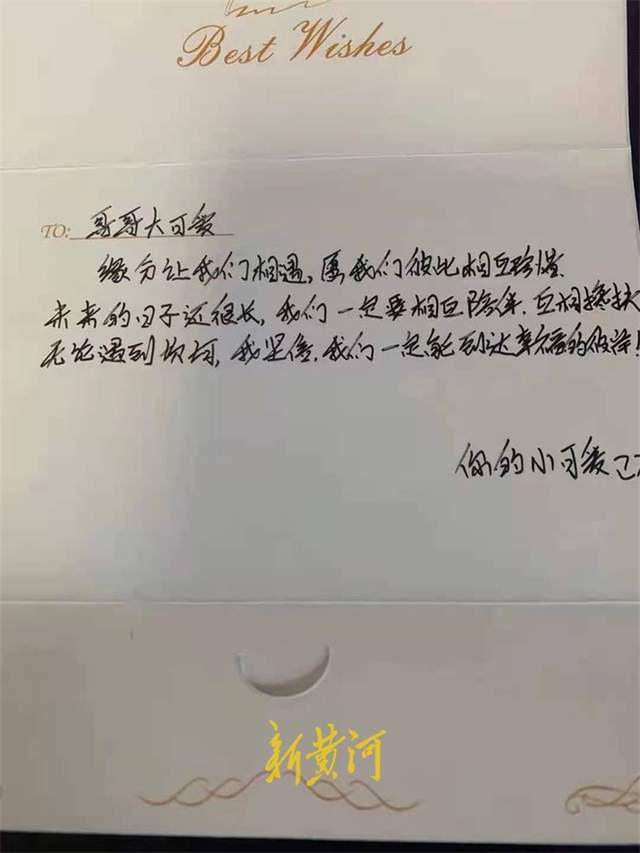 Best Wishes
TO: 哥哥大可爱
缘分让我们相遇,愿我们彼此相互珍惜.
未来的日子还很长,我们一定要相互陪伴.互相搀扶
无论遇到坎坷,我坚信.我们一定能到达幸福的彼岸!
你的小可爱
新黄河